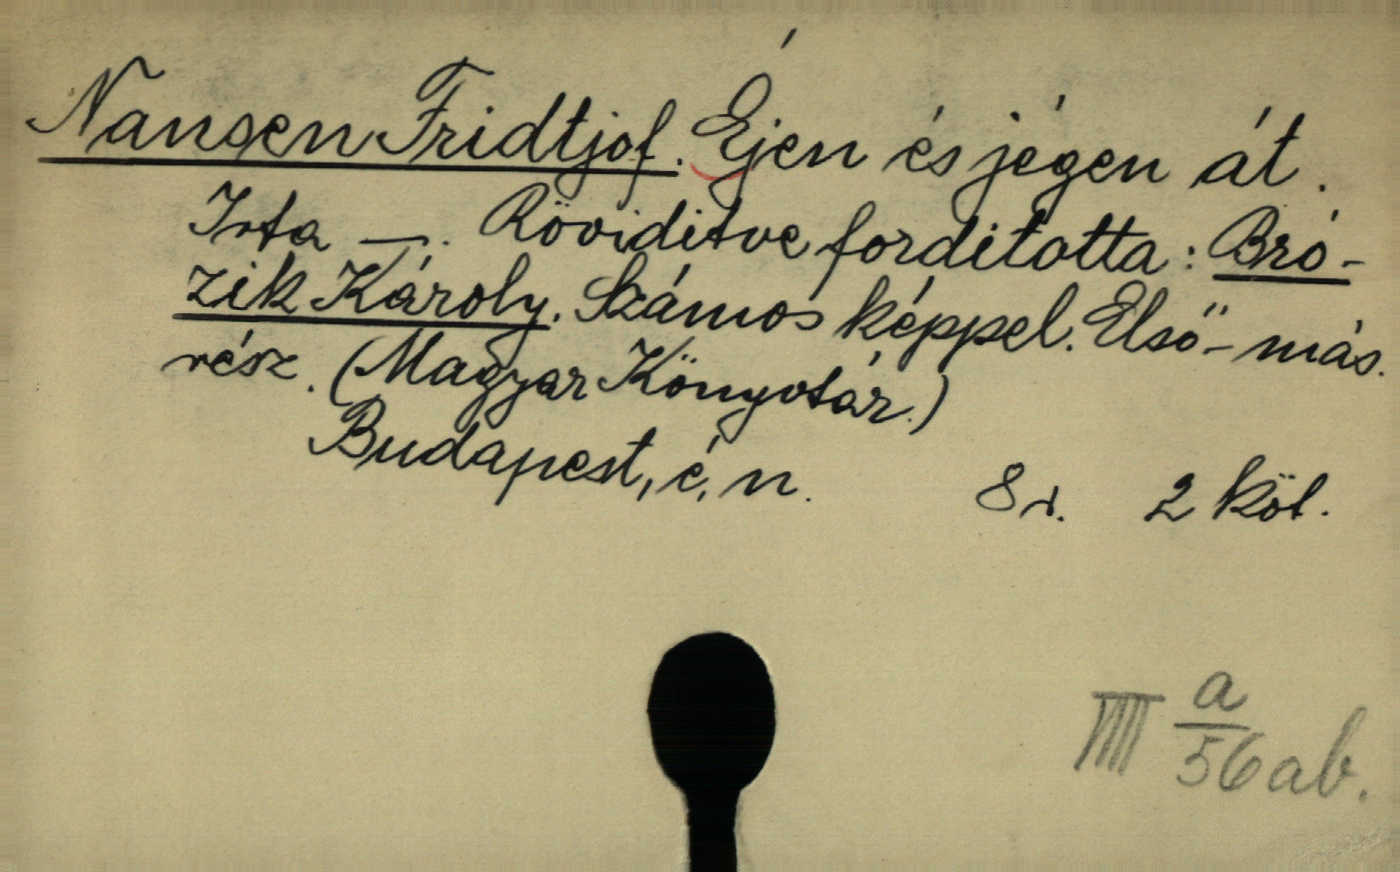 Nansen Fridtjof. Éjen és jégen át.
Irta —. Röviditve forditotta: Bró-
zik Károly. Számos képpel. Első-más.
rész. (Magyar Könyvtár.)
Budapest, é. n. 8r. 2 köt.
a
56 ab.